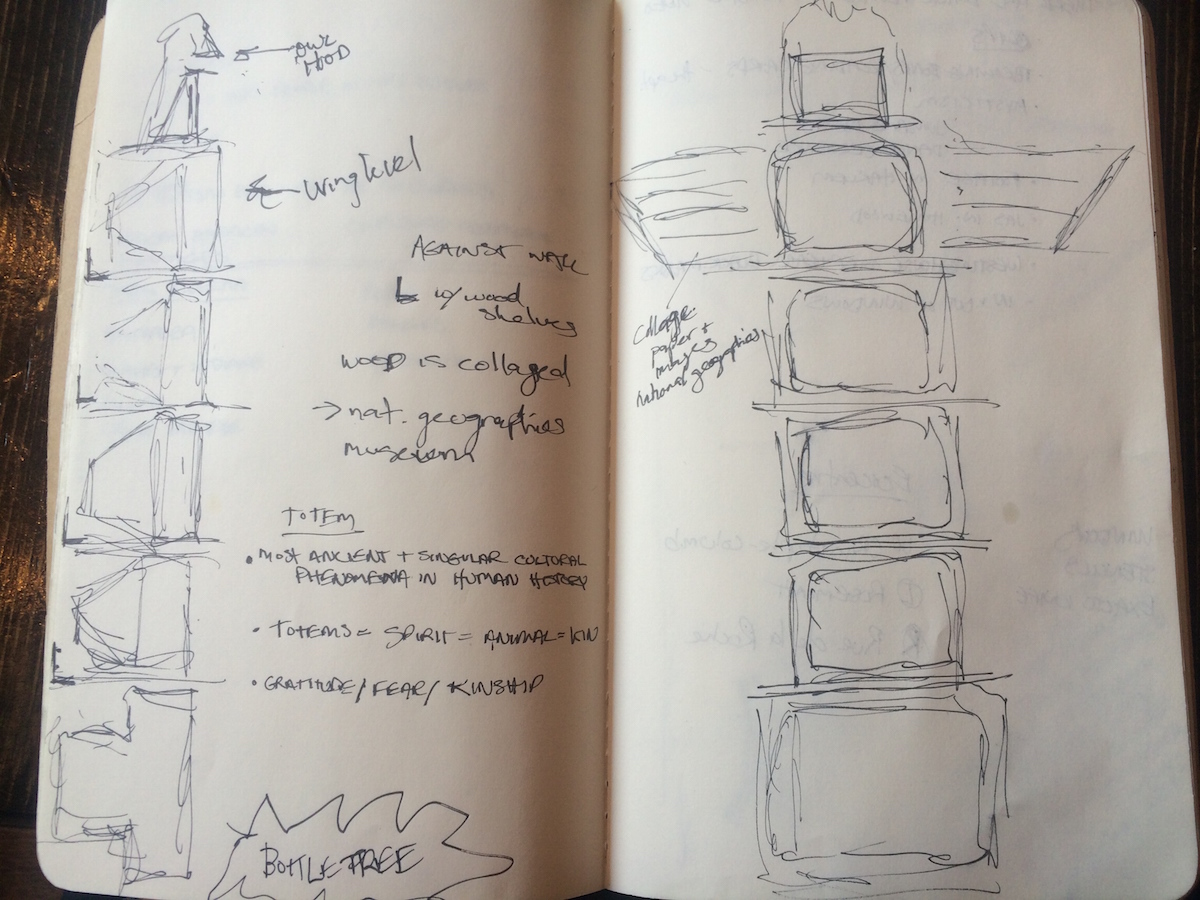 OWL
← Wing level
AGAINST WALL
w/ wood
shelves
WOOD is collaged
→ nat. geographies
museums
TOTEM
• MOST ANCIENT + SINGULAR CULTURAL
PHENOMENA IN HUMAN HISTORY
• TOTEMS = SPIRIT = ANIMAL = KIN
• GRATITUDE / FEAR / KINSHIP
BOTTLE TREE
collage
paper +
images
national geographies